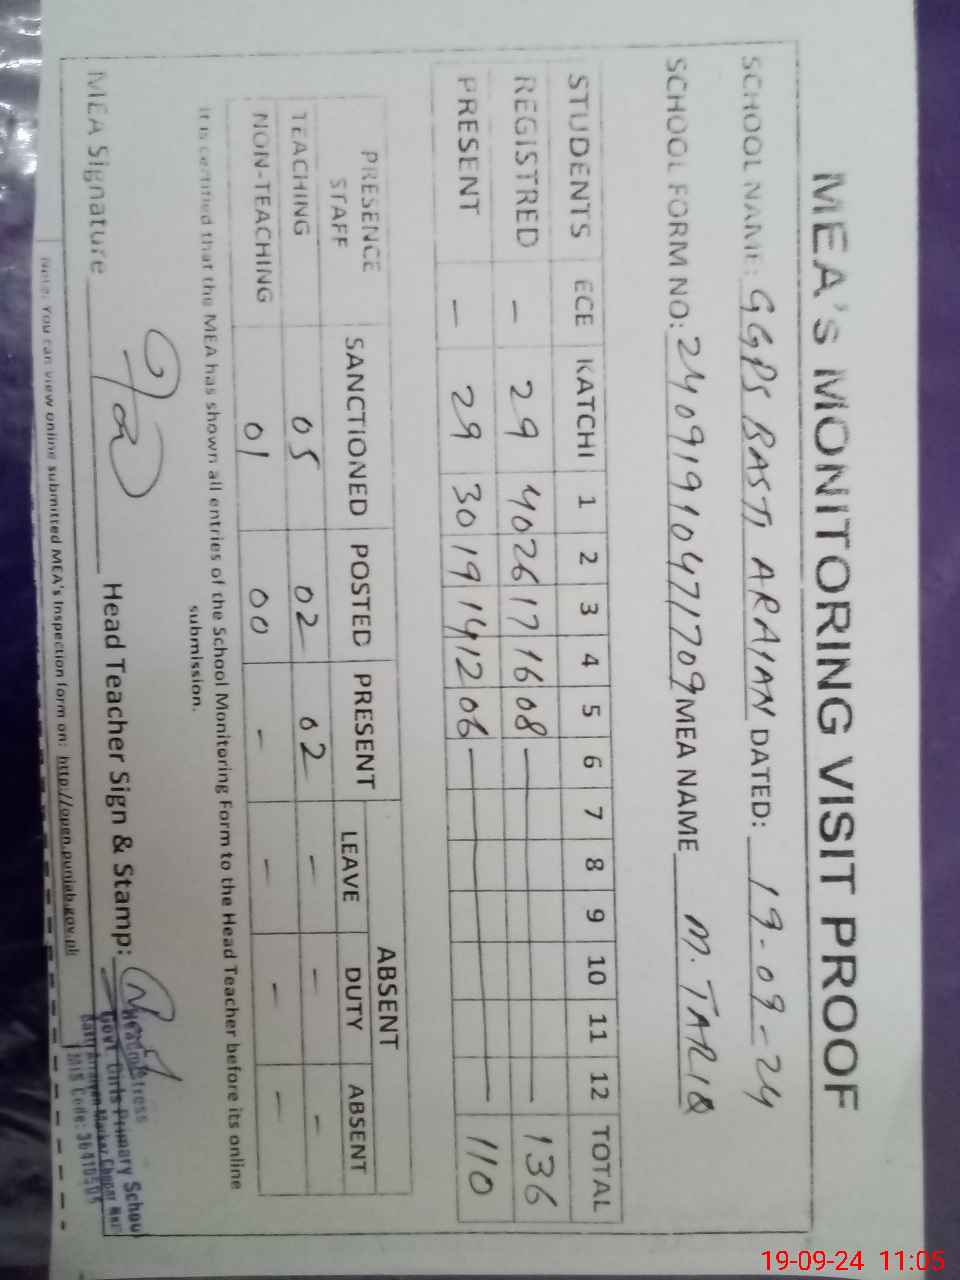 MEA's MONITORING VISIT PROOF
SCHOOL NAME: GGPS BASTI ARAIAN DATED: 19-09-24
SCHOOL FORM NO: 24091910471709 MEA NAME M. TARIQ
STUDENTS ECE KATCHI 1 2 3 4 5 6 7 8 9 10 11 12 TOTAL
REGISTRED - 29 40 26 17 16 08 - 136
PRESENT - 29 30 19 14 12 06 - 110
PRESENCE STAFF SANCTIONED POSTED PRESENT ABSENT
LEAVE DUTY ABSENT
TEACHING 05 02 02 - - -
NON-TEACHING 01 00 - - - -
It is certified that the MEA has shown all entries of the School Monitoring Form to the Head Teacher before its online
submission.
MEA Signature Head Teacher Sign & Stamp:
Headmistress
Govt. Girls Primary School
MIS Code:
Note: You can view online submitted MEA's Inspection form on: http://open.punjab.gov.pk
19-09-24 11:05